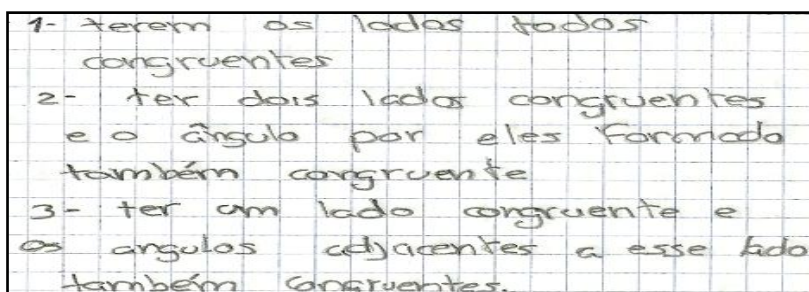 1- terem os lados todos
congruentes
2- ter dois lados congruentes
e o ângulo por eles formado
também congruente
3- ter um lado congruente e
os angulos adjacentes a esse lado
também congruentes.